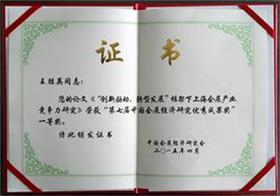 证书
王胜英同志：
您的论文《“创新驱动、转型发展”框架下上海会展产业
竞争力研究》荣获“第七届中国会展经济研究优秀成果奖”
一等奖。
特此颁发证书
中国会展经济研究会
二〇一五年四月